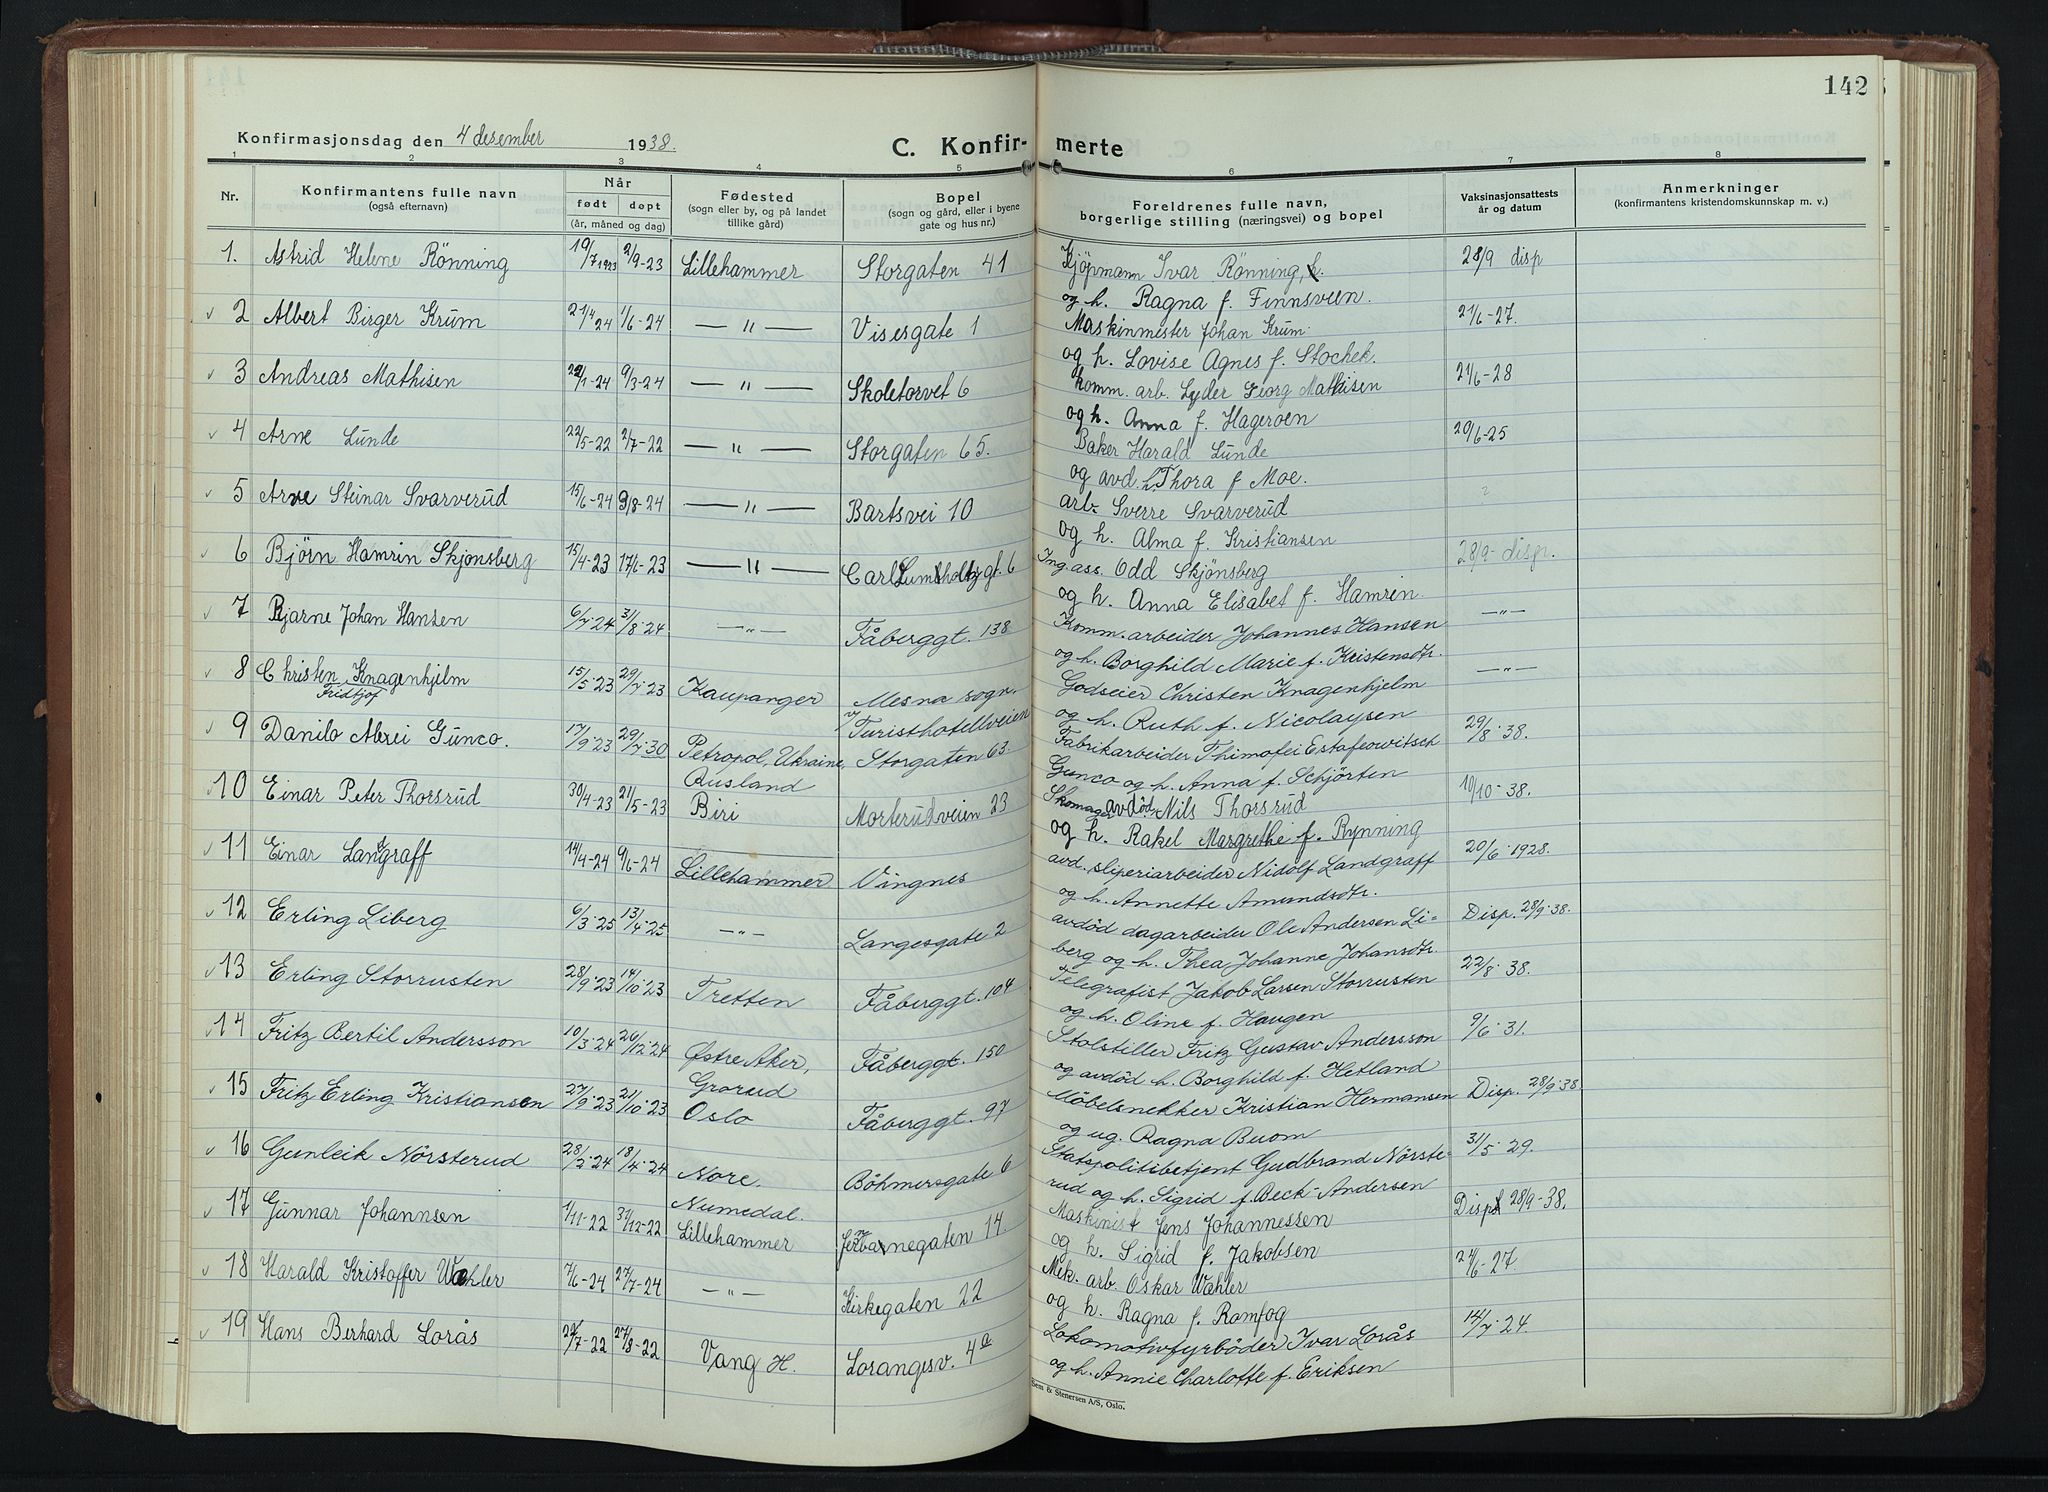 142
Konfirmasjonsdag den 4 desember 1938.
C. Konfir- merte
1 2 3 4 5 6 7 8
Nr.
Konfirmantens fulle navn
(også efternavn)
Når
født døpt
(år, måned og dag)
Fødested
(sogn eller by, og på landet
tillike gård)
Bopel
(sogn og gård, eller i byene
gate og hus nr.)
Foreldrenes fulle navn,
borgerlige stilling (næringsvei) og bopel
Vaksinasjonsattests
år og datum
Anmerkninger
(konfirmantens kristendomskunnskap m. v.)
1. Astrid Helene Rönning 19/7 1923 2/9-23 Lillehammer Storgaten 41 Kjöpmann Ivar Rönning, 28/9 disp
og h. Ragna f. Finnsveen.
2 Albert Birger Krum 21/4 24 1/6-24 — " — Visesgate 1 Maskinmester Johan Krum. 21/6-27.
og h. Lovise Agnes f. Stochek.
3 Andreas Mathisen 22/1-24 9/3-24 — " — Skoletorvet 6 Komm. arb. Lyder Georg Mathisen 21/6-28
og h. Anna f. Hageroen
4 Arne Lunde 22/5-22 2/7-22 — " — Storgaten 65. Baker Harald Lunde 20/6-25
og avd. h. Thora f Moe.
5 Arne Steinar Svarverud 15/6-24 9/8-24 — " — Bartsvei 10 arb. Sverre Svarverud
og h. Alma f. Kristiansen
6 Björn Hamrin Skjønsberg 15/4-23 17/6-23 — " — Carl Lumholtzgt. 6 Ing. ass. Odd Skjönsberg 28/9- disp.
og h. Anna Elisabet f. Hamrin.
7 Bjarne Johan Hansen 6/7-24 31/8-24 — " — Fåberggt. 138 Komm. arbeider Johannes Hansen — " —
og h. Borghild Marie f. Kristensdtr.
8 Christen Knagenhjelm 15/5-23 29/7-23 Kaupanger Mesna sogn. Godseier Christen Knagenhjelm — " —
Fridtjof v/ Turisthotellveien og h. Ruth f. Nicolaysen
9 Danilo Alexei Gunco. 17/9-23 29/7-30 Petropol, Ukraine, Storgaten 63. Fabrikarbeider Thimofei Estafeowitsch 29/8-38.
Rusland Gunco og h. Anna f. Schjörten
10 Einar Peter Thorsrud 30/4-23 21/5-23 Biri Morterudveien 23 Skomager avdöd Nils Thorsrud 10/10-38.
og h. Rakel Margrethe f. Rynning
11 Einar Landgraff 14/4-24 9/6-24 Lillehammer Vingnes avd. sliperiarbeider Nidolf Landgraff 20/6-1928.
og h. Annette Amundsdtr.
12 Erling Liberg 6/3-25 13/4-25 — " — Langesgate 2 avdöd dagarbeider Ole Andersen Li- Disp. 28/9-38.
berg og h. Thea Johanne Johansdtr.
13 Erling Storrusten 28/9-23 14/10-23 Tretten Fåberggt. 104 Telegrafist Jakob Larsen Storrusten 22/8-38.
og h. Oline f. Haugen
14 Fritz Bertil Andersson 10/3-24 26/12-24 Østre Aker, Fåberggt. 150 Stolstiller Fritz Gustav Andersson 9/6-31.
Grorud og avdöd h. Borghild f. Hetland
15 Fritz Erling Kristiansen 27/9-23 21/10-23 Oslo Fåberggt. 97 Möbelsnekker Kristian Hermansen Disp. 28/9-38.
og ug. Ragna Buom
16 Gunleik Nörsterud 28/2-24 18/4-24 Nore, Böhmersgate 6 Statspolitibetjent Gudbrand Nörste- 31/5-29.
Numedal. rud og h. Sigrid f. Beck-Andersen
17 Gunnar Johannsen 1/11-22 31/12-22 Lillehammer Jernbanegaten 14. Maskinist Jens Johannessen Disp 28/9-38.
og h. Sigrid f. Jakobsen
18 Harald Kristoffer Wæhler 7/6-24 27/7-24 — " — Kirkegaten 22 Mek. arb. Oskar Wæhler 21/6-27.
og h. Ragna f. Ramfog
19 Hans Berhard Lorås 22/7-22 27/8-22 Vang H. Lorangesv. 4a Lokomotivfyrböder Ivar Lorås 14/7-24.
og h. Annie Charlotte f. Eriksen
Sem & Stenersen A/S, Oslo.